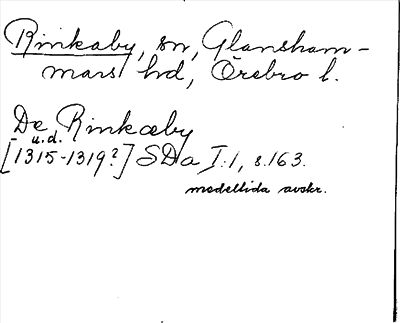 Rinkaby, sn, Glansham-
mars hd, Örebro l.
De Rinkæby
u.d.
[1315-1319?] SDa I:1, s. 163.
medeltida avskr.